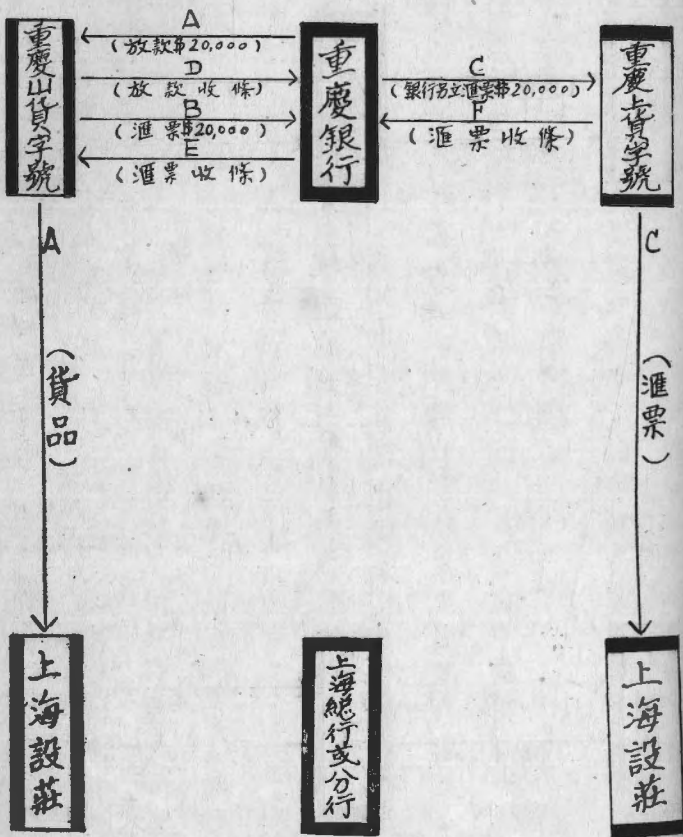 重慶山貨字號
A
(放款$20,000)
D
(放款收條)
B
(滙票$20,000)
E
(滙票收條)
重慶銀行
C
(銀行另立滙票$20,000)
F
(滙票收條)
重慶上貨字號
A
(貨品)
C
(滙票)
上海設莊
上海總行或分行
上海設莊